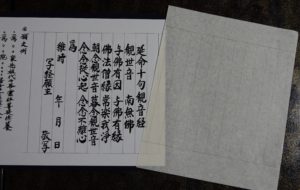 延命十句観音経
観世音 南無佛
与佛有因 与佛有縁
佛法僧縁 常楽我淨
朝念観世音 暮念観世音
念念從心起 念念不離心
為
維時 年 月 日
写経願主 敬写
願文例